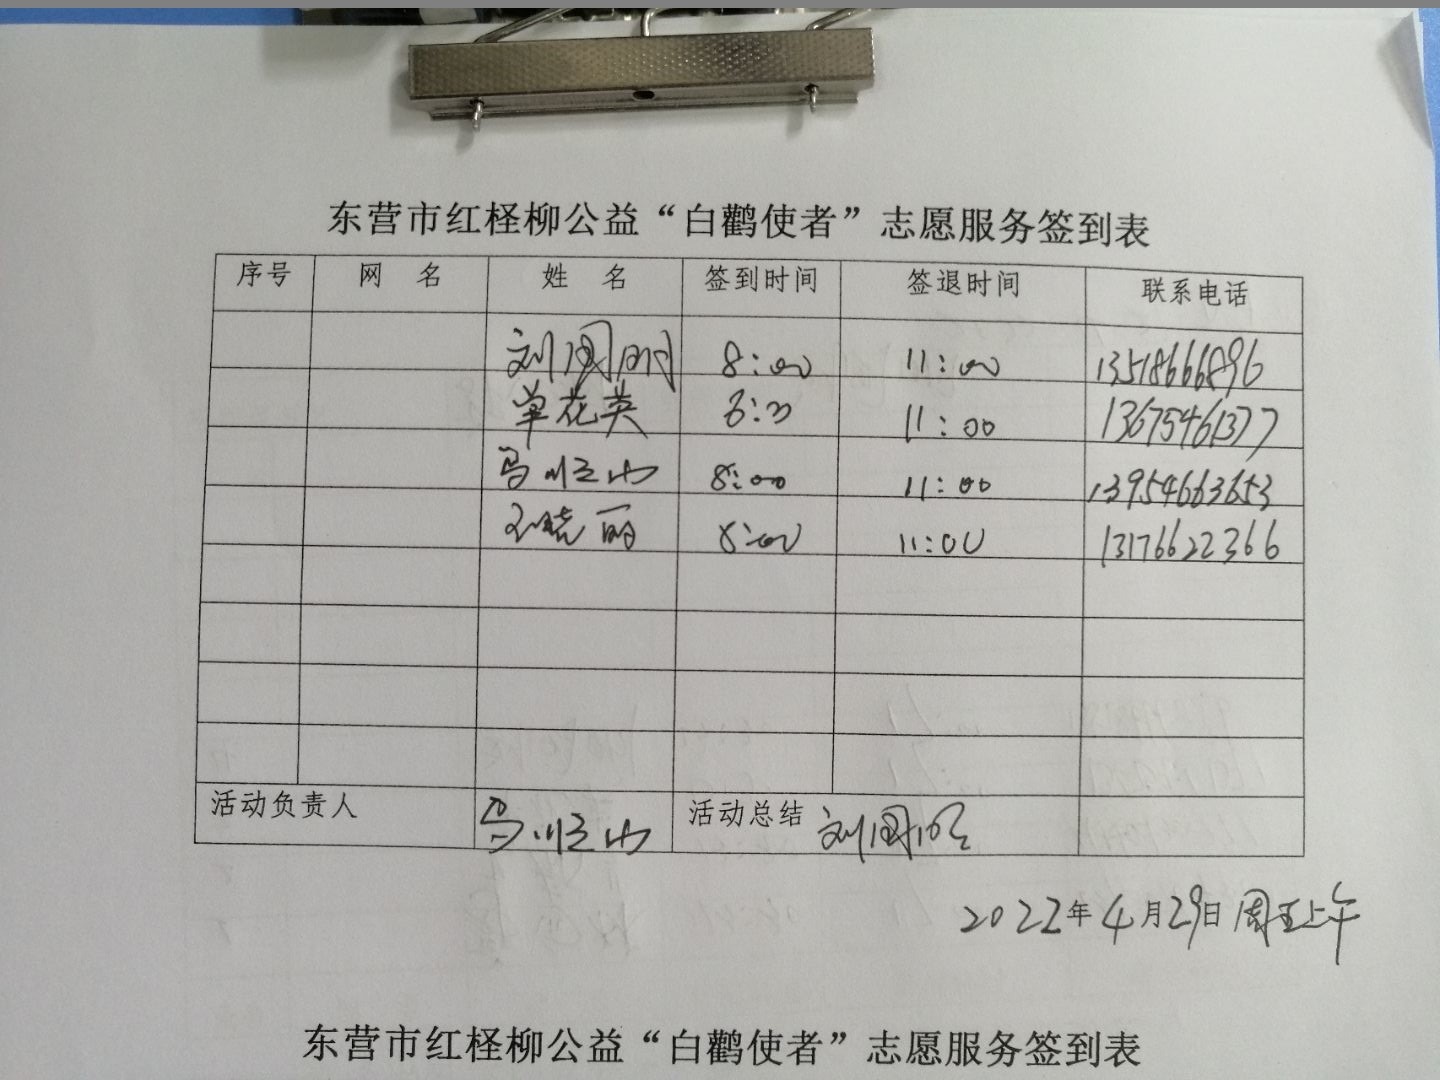 东营市红柽柳公益“白鹳使者”志愿服务签到表
序号 网 名 姓 名 签到时间 签退时间 联系电话
刘国明 8:00 11:00 13518666896
单花英 8:00 11:00 13675461377
马恒山 8:00 11:00 13954663653
晓丽 8:00 11:00 13176622366
活动负责人 马恒山 活动总结 刘国明
2022年4月29日周五上午
东营市红柽柳公益“白鹳使者”志愿服务签到表